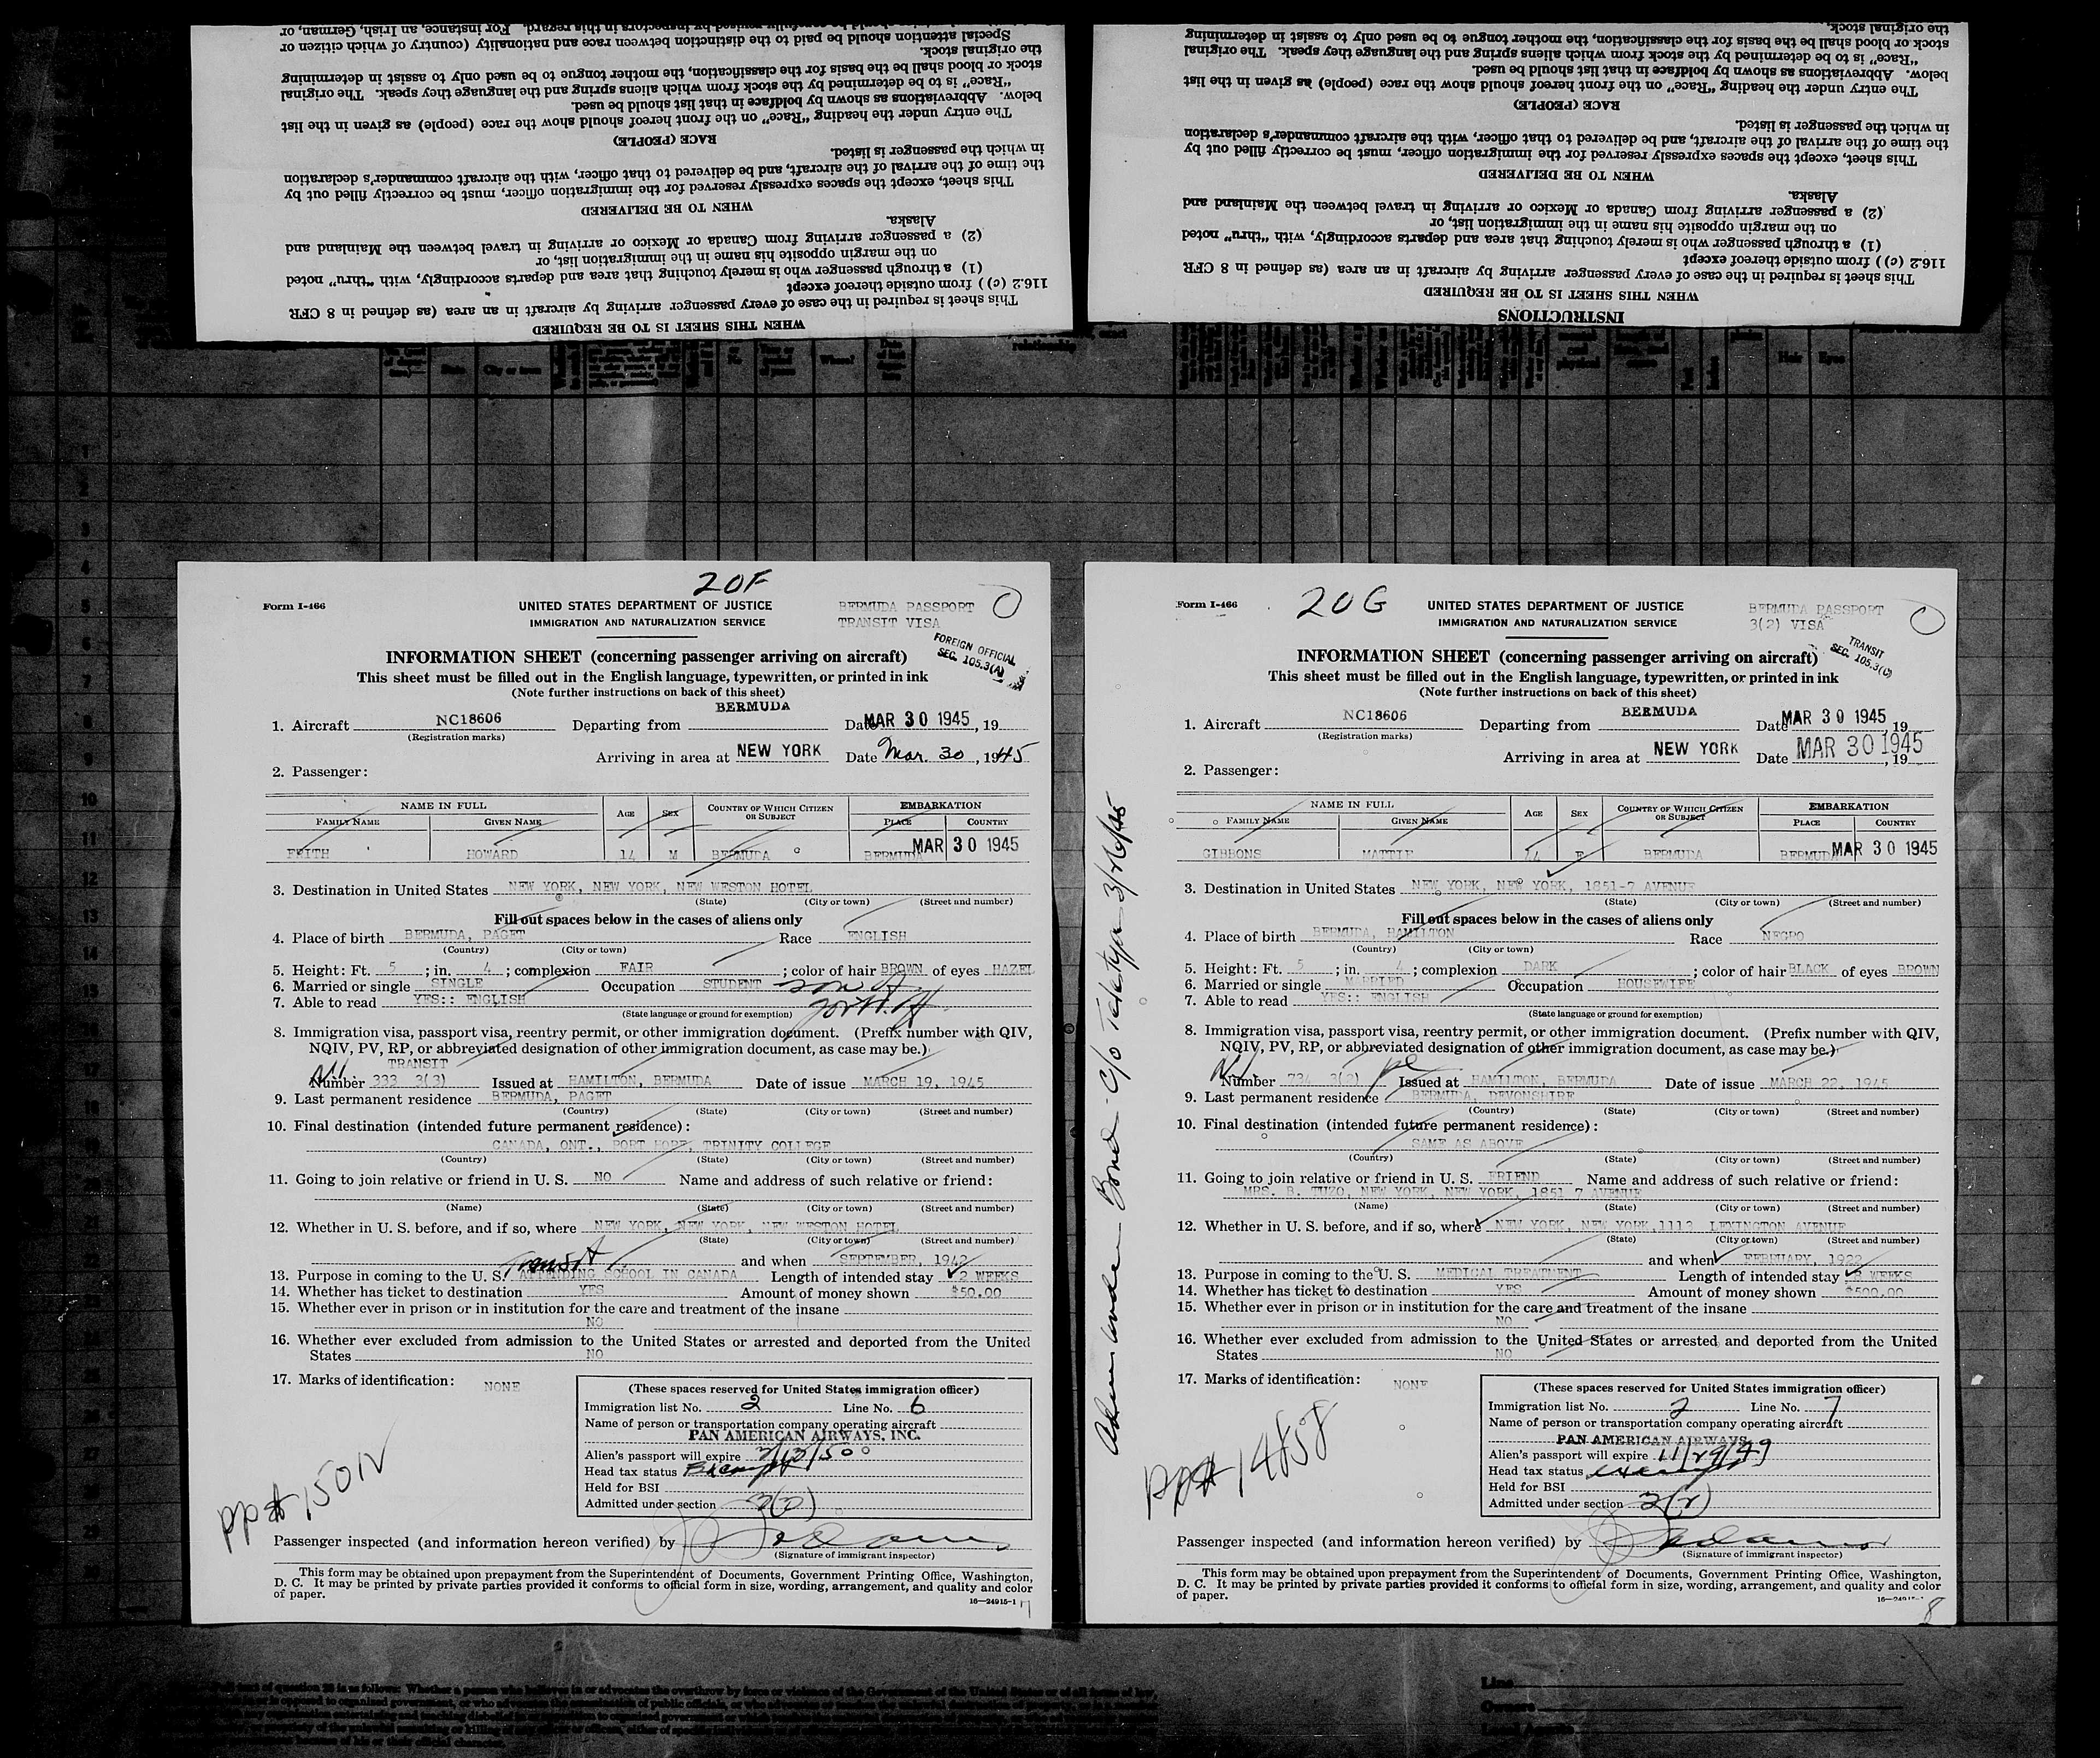 WHEN THIS SHEET IS TO BE REQUIRED
This sheet is required in the case of every passenger arriving by aircraft in an area (as defined in 8 CFR
116.2 (c)) from outside thereof except
(1) a through passenger who is merely touching that area and departs accordingly, with "thru" noted
on the margin opposite his name in the immigration list, or
(2) a passenger arriving from Canada or Mexico or arriving in travel between the Mainland and
Alaska.
WHEN TO BE DELIVERED
This sheet, except the spaces expressly reserved for the immigration officer, must be correctly filled out by
the time of the arrival of the aircraft, and be delivered to that officer, with the aircraft commander's declaration
in which the passenger is listed.
RACE (PEOPLE)
The entry under the heading "Race" on the front hereof should show the race (people) as given in the list
below. Abbreviations as shown by boldface in that list should be used.
"Race" is to be determined by the stock from which aliens spring and the language they speak. The original
stock or blood shall be the basis for the classification, the mother tongue to be used only to assist in determining
the original stock.
Special attention should be paid to the distinction between race and nationality (country of which citizen or
For instance, an Irish, German, or
INSTRUCTIONS
WHEN THIS SHEET IS TO BE REQUIRED
This sheet is required in the case of every passenger arriving by aircraft in an area (as defined in 8 CFR
116.2 (c)) from outside thereof except
(1) a through passenger who is merely touching that area and departs accordingly, with "thru" noted
on the margin opposite his name in the immigration list, or
(2) a passenger arriving from Canada or Mexico or arriving in travel between the Mainland and
Alaska.
WHEN TO BE DELIVERED
This sheet, except the spaces expressly reserved for the immigration officer, must be correctly filled out by
the time of the arrival of the aircraft, and be delivered to that officer, with the aircraft commander's declaration
in which the passenger is listed.
RACE (PEOPLE)
The entry under the heading "Race" on the front hereof should show the race (people) as given in the list
below. Abbreviations as shown by boldface in that list should be used.
"Race" is to be determined by the stock from which aliens spring and the language they speak. The original
stock or blood shall be the basis for the classification, the mother tongue to be used only to assist in determining
the original stock.
20F
Form I-466 UNITED STATES DEPARTMENT OF JUSTICE BERMUDA PASSPORT
IMMIGRATION AND NATURALIZATION SERVICE TRANSIT VISA
FOREIGN OFFICIAL
SEC. 105.3(A)
INFORMATION SHEET (concerning passenger arriving on aircraft)
This sheet must be filled out in the English language, typewritten, or printed in ink
(Note further instructions on back of this sheet)
BERMUDA
1. Aircraft NC18606 Departing from Date MAR 30 1945, 19
(Registration marks)
Arriving in area at NEW YORK Date Mar. 30, 1945
2. Passenger:
NAME IN FULL AGE SEX COUNTRY OF WHICH CITIZEN OR SUBJECT EMBARKATION
FAMILY NAME GIVEN NAME PLACE COUNTRY
FRITH HOWARD 14 M BERMUDA BERMUDA MAR 30 1945
3. Destination in United States NEW YORK, NEW YORK, NEW WESTON HOTEL
(State) (City or town) (Street and number)
Fill out spaces below in the cases of aliens only
4. Place of birth BERMUDA, PAGET Race ENGLISH
(Country) (City or town)
5. Height: Ft. 5; in. 4; complexion FAIR; color of hair BROWN of eyes HAZEL
6. Married or single SINGLE Occupation STUDENT son of
7. Able to read YES:: ENGLISH
(State language or ground for exemption)
8. Immigration visa, passport visa, reentry permit, or other immigration document. (Prefix number with QIV,
NQIV, PV, RP, or abbreviated designation of other immigration document, as case may be.)
TRANSIT
Number 333 3(3) Issued at HAMILTON, BERMUDA Date of issue MARCH 19, 1945
9. Last permanent residence BERMUDA, PAGET
(Country) (State) (City or town) (Street and number)
10. Final destination (intended future permanent residence):
CANADA, ONT., PORT HOPE, TRINITY COLLEGE
(Country) (State) (City or town) (Street and number)
11. Going to join relative or friend in U. S. NO Name and address of such relative or friend:
(Name) (State) (City or town) (Street and number)
12. Whether in U. S. before, and if so, where NEW YORK, NEW YORK, NEW WESTON HOTEL
(State) (City or town) (Street and number)
and when SEPTEMBER, 1942
Transit
13. Purpose in coming to the U. S. ATTENDING SCHOOL IN CANADA Length of intended stay 2 WEEKS
14. Whether has ticket to destination YES Amount of money shown $50.00
15. Whether ever in prison or in institution for the care and treatment of the insane
NO
16. Whether ever excluded from admission to the United States or arrested and deported from the United
States NO
17. Marks of identification: NONE
(These spaces reserved for United States immigration officer)
Immigration list No. 2 Line No. 6
Name of person or transportation company operating aircraft
PAN AMERICAN AIRWAYS, INC.
Alien's passport will expire
Head tax status Exempt
Held for BSI
Admitted under section 3(3)
pp# 15012
Passenger inspected (and information hereon verified) by
(Signature of immigrant inspector)
This form may be obtained upon prepayment from the Superintendent of Documents, Government Printing Office, Washington,
D. C. It may be printed by private parties provided it conforms to official form in size, wording, arrangement, and quality and color
of paper.
16—24915-1 7
20G
Form I-466 UNITED STATES DEPARTMENT OF JUSTICE BERMUDA PASSPORT
IMMIGRATION AND NATURALIZATION SERVICE 3(2) VISA
TRANSIT
SEC. 105.3(C)
INFORMATION SHEET (concerning passenger arriving on aircraft)
This sheet must be filled out in the English language, typewritten, or printed in ink
(Note further instructions on back of this sheet)
BERMUDA
1. Aircraft NC18606 Departing from Date MAR 30 1945, 19
(Registration marks)
Arriving in area at NEW YORK Date MAR 30 1945, 19
2. Passenger:
NAME IN FULL AGE SEX COUNTRY OF WHICH CITIZEN OR SUBJECT EMBARKATION
FAMILY NAME GIVEN NAME PLACE COUNTRY
GIBBONS MATTIE F BERMUDA BERMUDA MAR 30 1945
3. Destination in United States NEW YORK, NEW YORK, 1851-7 AVENUE
(State) (City or town) (Street and number)
Fill out spaces below in the cases of aliens only
4. Place of birth BERMUDA, HAMILTON Race NEGRO
(Country) (City or town)
5. Height: Ft. 5; in. 4; complexion DARK; color of hair BLACK of eyes BROWN
6. Married or single MARRIED Occupation HOUSEWIFE
7. Able to read YES:: ENGLISH
(State language or ground for exemption)
8. Immigration visa, passport visa, reentry permit, or other immigration document. (Prefix number with QIV,
NQIV, PV, RP, or abbreviated designation of other immigration document, as case may be.)
Number 734 3(2) Issued at HAMILTON, BERMUDA Date of issue MARCH 22, 1945
9. Last permanent residence BERMUDA, DEVONSHIRE
(Country) (State) (City or town) (Street and number)
10. Final destination (intended future permanent residence):
SAME AS ABOVE
(Country) (State) (City or town) (Street and number)
11. Going to join relative or friend in U. S. FRIEND Name and address of such relative or friend:
MRS. B. TUZO, NEW YORK, NEW YORK, 1851 7 AVENUE
(Name) (State) (City or town) (Street and number)
12. Whether in U. S. before, and if so, where NEW YORK, NEW YORK, 1113 LEXINGTON AVENUE
(State) (City or town) (Street and number)
and when FEBRUARY,
13. Purpose in coming to the U. S. MEDICAL TREATMENT Length of intended stay 8 WEEKS
14. Whether has ticket to destination YES Amount of money shown $500.00
15. Whether ever in prison or in institution for the care and treatment of the insane
NO
16. Whether ever excluded from admission to the United States or arrested and deported from the United
States NO
17. Marks of identification: NONE
(These spaces reserved for United States immigration officer)
Immigration list No. 2 Line No. 7
Name of person or transportation company operating aircraft
PAN AMERICAN AIRWAYS
Alien's passport will expire 11/29/49
Head tax status exempt
Held for BSI
Admitted under section 3(2)
pp# 14858
Passenger inspected (and information hereon verified) by
(Signature of immigrant inspector)
This form may be obtained upon prepayment from the Superintendent of Documents, Government Printing Office, Washington,
D. C. It may be printed by private parties provided it conforms to official form in size, wording, arrangement, and quality and color
of paper.
8